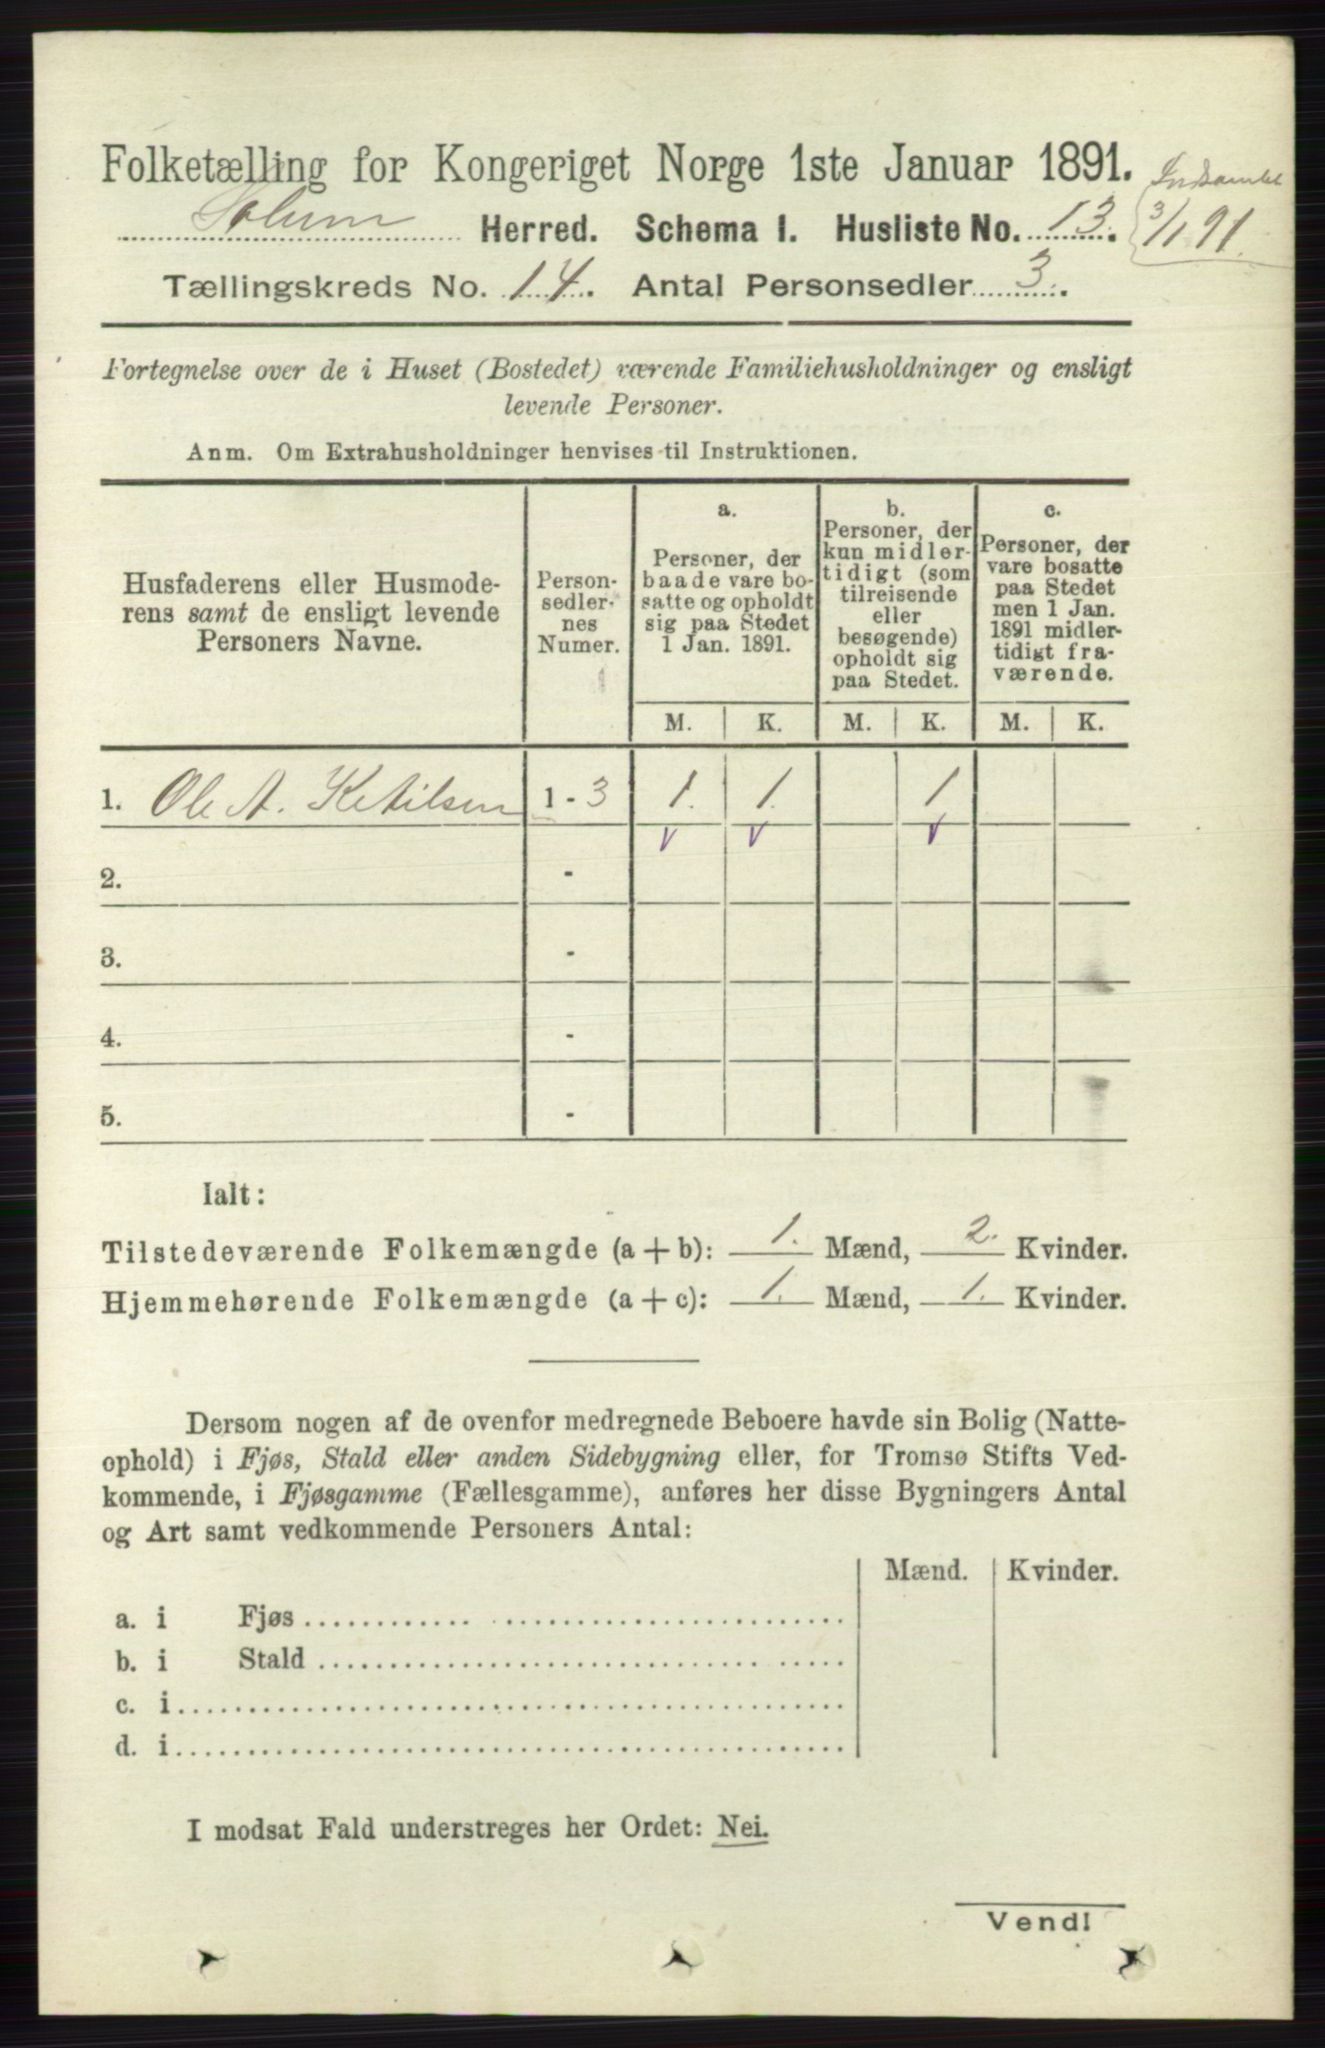 Folketælling for Kongeriget Norge 1ste Januar 1891.
Indsamlet
3/1 91.
Solum Herred. Schema I. Husliste No. 13.
Tællingskreds No. 14. Antal Personsedler 3.
Fortegnelse over de i Huset (Bostedet) værende Familiehusholdninger og ensligt
levende Personer.
Anm. Om Extrahusholdninger henvises til Instruktionen.
Husfaderens eller Husmode-
rens samt de ensligt levende
Personers Navne.
Person-
sedler-
nes
Numer.
a.
Personer, der
baade vare bo-
satte og opholdt
sig paa Stedet
1 Jan. 1891.
b.
Personer, der
kun midler-
tidigt (som
tilreisende
eller
besøgende)
opholdt sig
paa Stedet.
c.
Personer, der
vare bosatte
paa Stedet
men 1 Jan.
1891 midler-
tidigt fra-
værende.
M. K. M. K. M. K.
1. Ole A. Ketilsen 1 - 3 1. 1. 1
v v v
2. -
3. -
4. -
5. -
Ialt:
Tilstedeværende Folkemængde (a + b): 1. Mænd, 2. Kvinder.
Hjemmehørende Folkemængde (a + c): 1. Mænd, 1. Kvinder.
Dersom nogen af de ovenfor medregnede Beboere havde sin Bolig (Natte-
ophold) i Fjøs, Stald eller anden Sidebygning eller, for Tromsø Stifts Ved-
kommende, i Fjøsgamme (Fællesgamme), anføres her disse Bygningers Antal
og Art samt vedkommende Personers Antal:
Mænd. Kvinder.
a. i Fjøs
b. i Stald
c. i
d. i
I modsat Fald understreges her Ordet: Nei.
Vend!